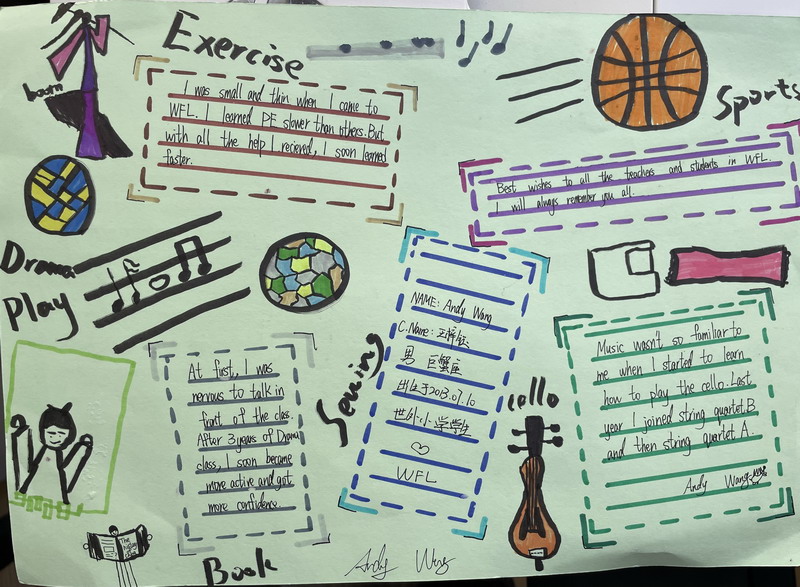 Exercise
I was small and thin when I came to
WFL. I learned PE slower than others. But
with all the help I recieved, I soon learned
faster.
Sports
Best wishes to all the teachers and students in WFL.
I will always remember you all.
Drama
Play
At first, I was
nervous to talk in
font of the class.
After 3 years of Drama
class, I soon became
more active and got
more confidence.
Sewing
NAME: Andy Wang
C.Name: 王
男 巨蟹座
出生于2013.07.10
世外小学学生
WFL
cello
Music wasn't so familiar to
me when I started to learn
how to play the cello. Last
year I joined string quartet B
and then string quartet A.
Andy Wang
Book
Andy Wang